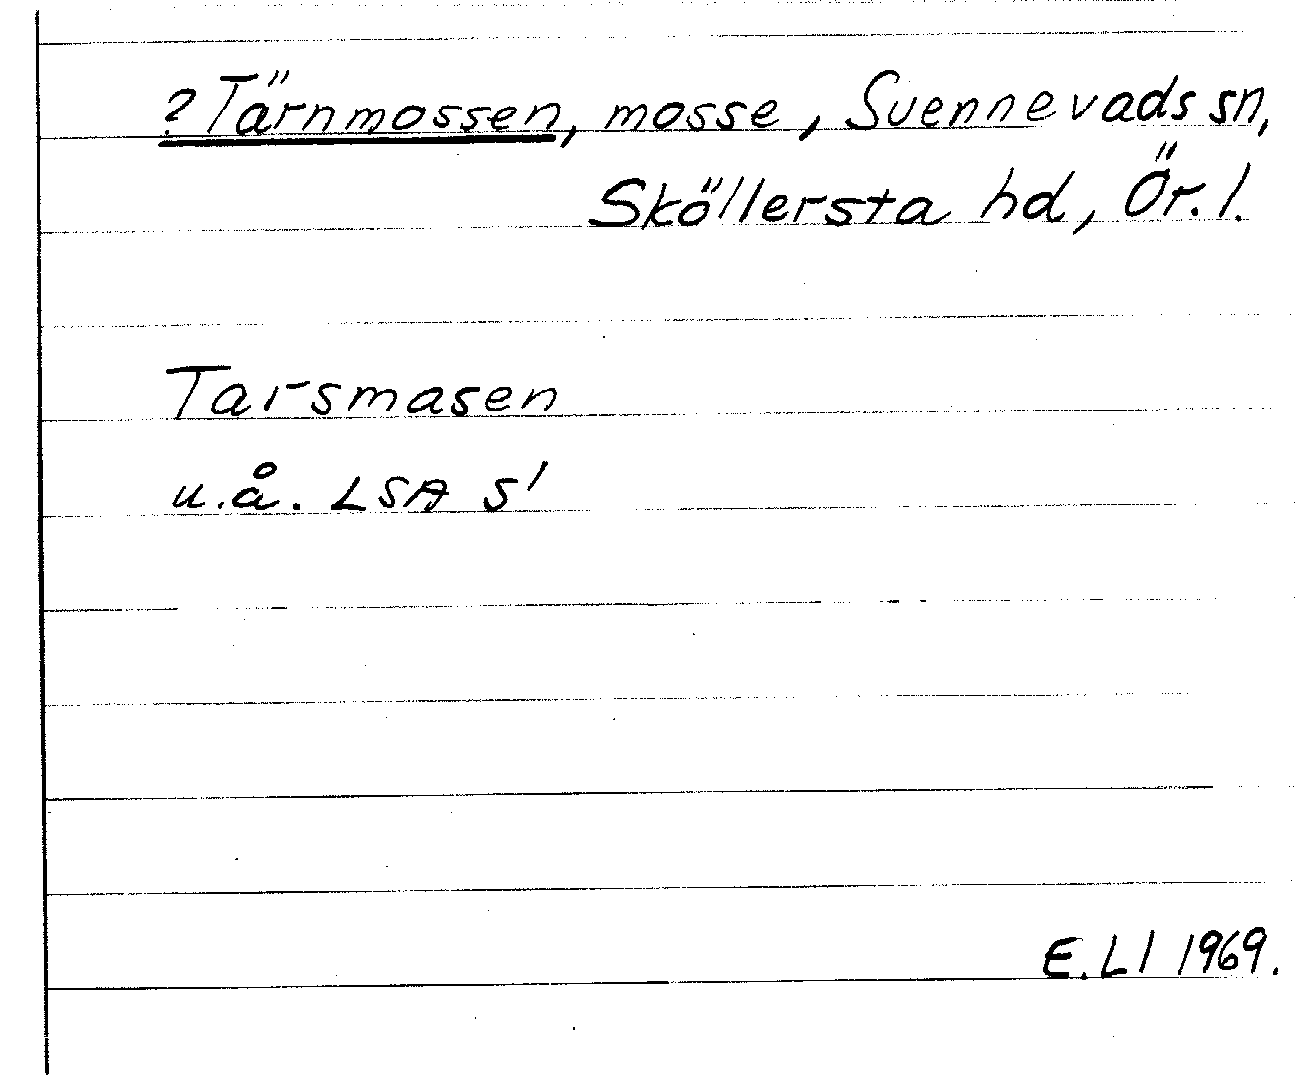 ?Tärnmossen, mosse, Svennevads sn,
Sköllersta hd, Ör. l.
Tarsmasen
u.å. LSA S'
E. Ll 1969.